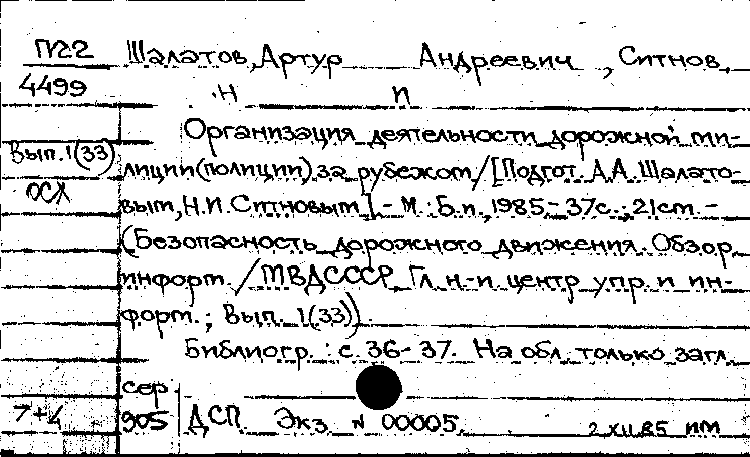 П22 Шалатов, Артур Андреевич, Ситнов,
4499 Н И
Организация деятельности дорожной ми-
Вып. 1(33) лиции (полиции) за рубежом / [Подгот. А.А. Шалато-
ОСХ вым, Н.И. Ситновым]. - М.: Б.и., 1985 - 37с.; 21см. -
(Безопасность дорожного движения. Обзор.
информ. / МВД СССР, Гл. н.-и. центр упр. и ин-
форм.; Вып. 1(33)).
Библиогр.: с. 36-37. На обл. только загл.
сер.
7+4 905 ДСП. Экз. N 00005. 2 XII.85 ИМ